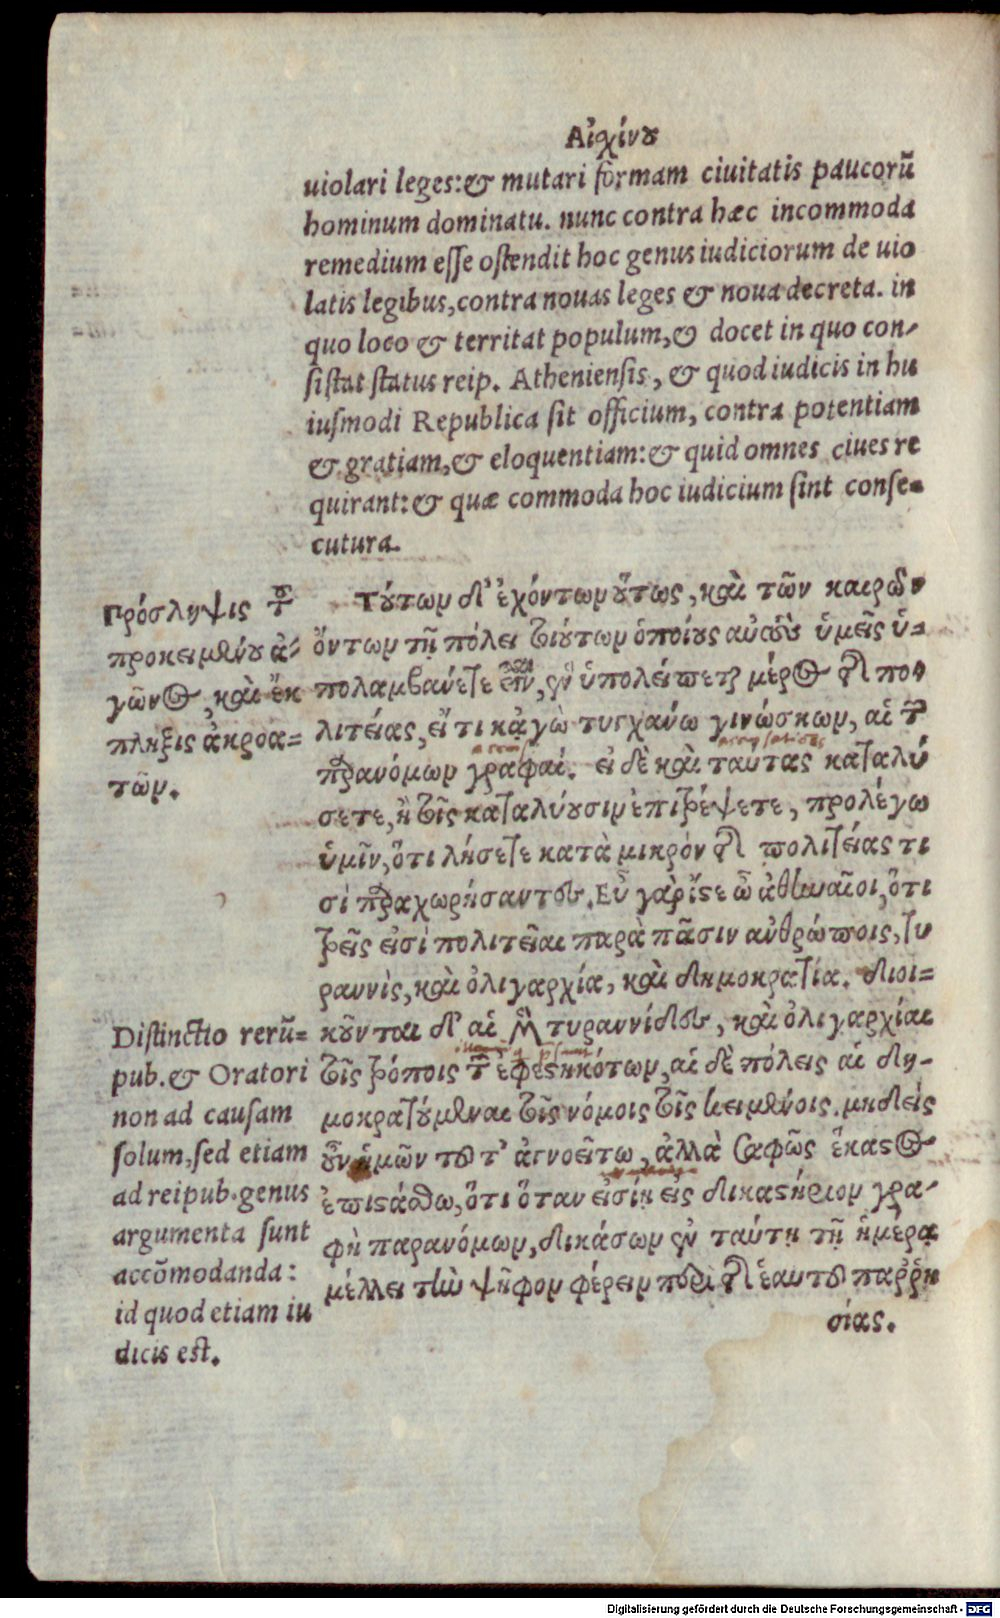 Αἰσχίνου
uiolari leges: & mutari formam ciuitatis paucorũ
hominum dominatu. nunc contra hæc incommoda
remedium esse ostendit hoc genus iudiciorum de uio
latis legibus, contra nouas leges & noua decreta. in
quo loco & territat populum, & docet in quo con-
sistat status reip. Atheniensis, & quod iudicis in hu
iusmodi Republica sit officium, contra potentiam
& gratiam, & eloquentiam: & quid omnes ciues re
quirant: & quæ commoda hoc iudicium sint conse-
cutura.
Πρόσληψις τοῦ
προκειμένου ἀ-
γῶνος, καὶ ἔκ
πληξις ἀκροα-
τῶν.
Τούτων δ' ἐχόντων οὕτως, καὶ τῶν καιρῶν
ὄντων τῇ πόλει τοιούτων ὁποίους αὐτοὺς ὑμεῖς ὑ-
πολαμβάνετε εἶναι, ἓν ὑπολείπεται μέρος τῆς πο-
λιτείας, εἴ τι κᾀγὼ τυγχάνω γινώσκων, αἱ τῶν
παρανόμων γραφαί. εἰ δὲ καὶ ταύτας καταλύ
σετε, ἢ τοῖς καταλύουσιν ἐπιτρέψετε, προλέγω
ὑμῖν, ὅτι λήσετε κατὰ μικρὸν τῆς πολιτείας τι
σὶ παραχωρήσαντες. Εὖ γὰρ ἴστε ὦ ἀθηναῖοι, ὅτι
τρεῖς εἰσὶ πολιτεῖαι παρὰ πᾶσιν ἀνθρώποις, τυ
ραννὶς, καὶ ὀλιγαρχία, καὶ δημοκρατία. διοι-
κοῦνται δ' αἱ μὲν τυραννίδες, καὶ ὀλιγαρχίαι
τοῖς τρόποις τῶν ἐφεστηκότων, αἱ δὲ πόλεις αἱ δη-
μοκρατούμεναι τοῖς νόμοις τοῖς κειμένοις. μηδεὶς
οὖν ὑμῶν τοῦτ' ἀγνοείτω, ἀλλὰ σαφῶς ἕκαστος
ἐπιστάσθω, ὅτι ὅταν εἰσίῃ εἰς δικαστήριον γρα-
φὴν παρανόμων, δικάσων ἐν ταύτῃ τῇ ἡμέρᾳ
μέλλει τὴν ψῆφον φέρειν περὶ τῆς ἑαυτοῦ παῤῥη
σίας.
Distinctio rerũ-
pub. & Oratori
non ad causam
solum, sed etiam
ad reipub. genus
argumenta sunt
accõmodanda:
id quod etiam iu
dicis est.
Digitalisierung gefördert durch die Deutsche Forschungsgemeinschaft - DFG